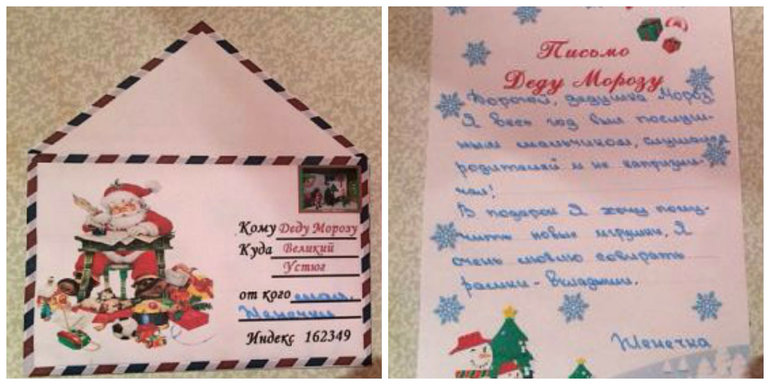 Кому Деду Морозу
Куда Великий
Устюг
от кого
Женечки
Индекс 162349
Письмо
Деду Морозу
Дорогой, дедушка Мороз
Я весь год был послуш-
ным мальчиком, слушался
родителей и не капризни-
чал!
В подарок Я хочу полу-
чить новые игрушки, Я
очень люблю собирать
рамки-вкладыши.
Женечка